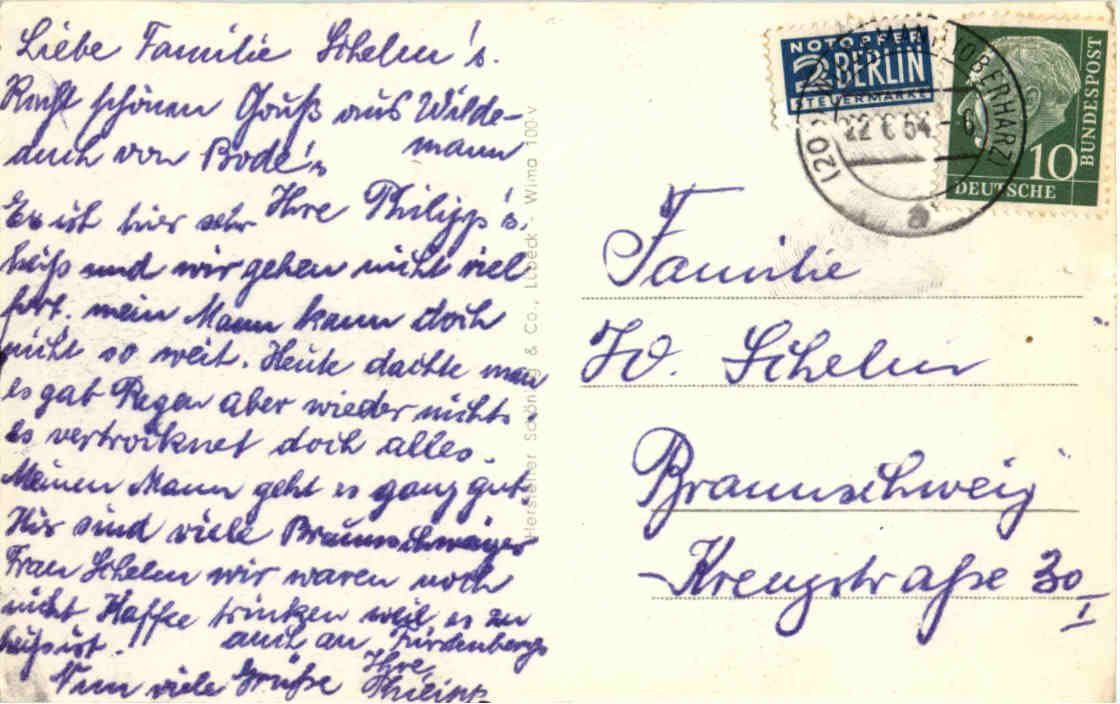 Liebe Familie Schelm's.
Recht schönen Gruß aus Wilde-
mann
auch von Bode's
Ihre Philipp's.
Es ist hier sehr
heiß und wir gehen nicht viel
fort. mein Mann kann doch
nicht so weit. Heute dachte man
es gab Regen aber wieder nichts.
es vertrocknet doch alles.
Meinen Mann geht es ganz gut.
Hir sind viele Braunschweiger
Frau Schelm wir waren noch
nicht Kaffee trinken weil es zu
heiß ist.
auch an
Nun viele Grüße Ihre
Philipp
Hersteller Schöning & Co., Lübeck - Wimo 100-v
NOTOPFER
2 BERLIN
STEUERMARKE
(20
OBERHARZ)
22 6 54 - 6
a
10
DEUTSCHE
BUNDESPOST
Familie
W. Schelm
Braunschweig
Kreuzstraße 30
I